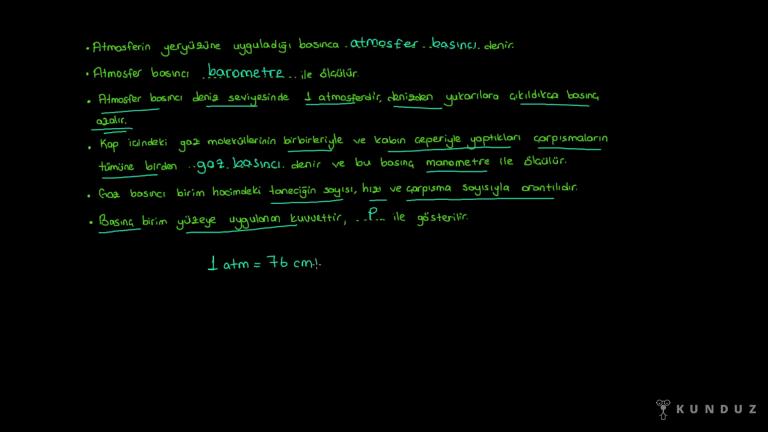 • Atmosferin yeryüzüne uyguladığı basınca .atmosfer..basıncı. denir.
• Atmosfer basıncı ..barometre.. ile ölçülür.
• Atmosfer basıncı deniz seviyesinde 1 atmosferdir, denizden yukarılara çıkıldıkça basınç
azalır.
• Kap içindeki gaz moleküllerinin birbirleriyle ve kabın çeperiyle yaptıkları çarpışmaların
tümüne birden ..gaz.basıncı. denir ve bu basınç manometre ile ölçülür.
• Gaz basıncı birim hacimdeki taneciğin sayısı, hızı ve çarpışma sayısıyla orantılıdır.
• Basınç birim yüzeye uygulanan kuvvettir, ..P... ile gösterilir.
1 atm = 76 cm
KUNDUZ